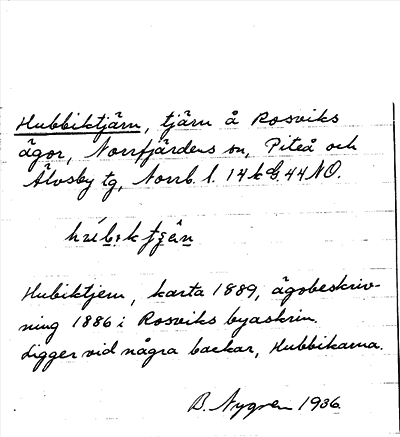 Hubbiktjärn, tjärn å Rosviks
ägor, Norrfjärdens sn, Piteå och
Älvsby tg, Norrb. l. 14 k G. 44 NO.
Hubiktjern, karta 1889, ägobeskriv-
ning 1886 i Rosviks byaskrin.
Ligger vid några backar, Hubbikarna.
B. Nygren 1936.